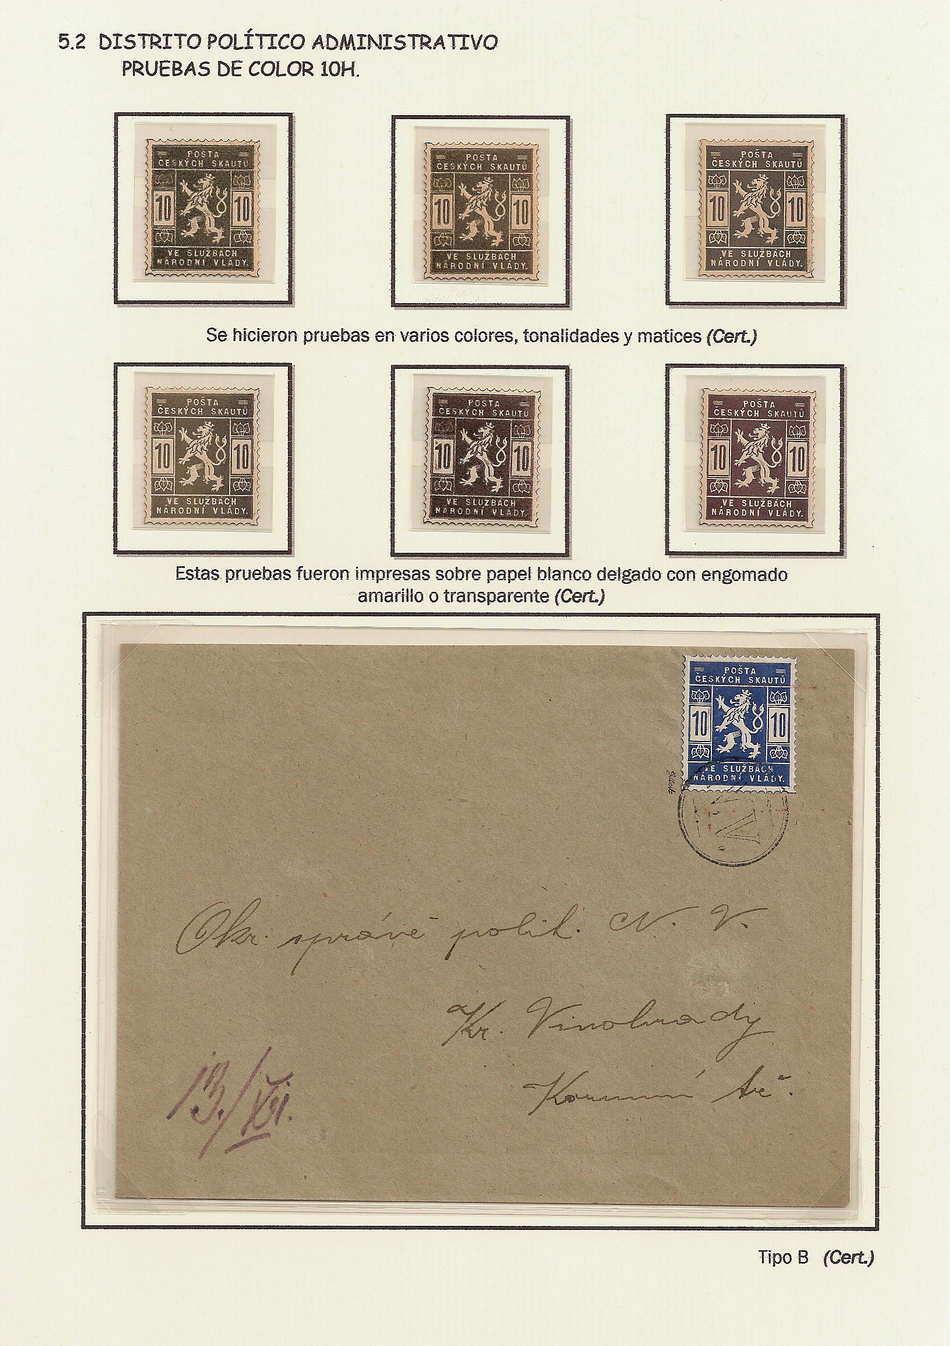 5.2 DISTRITO POLÍTICO ADMINISTRATIVO
PRUEBAS DE COLOR 10H.
POŠTA
ČESKÝCH SKAUTŮ
10 10
VE SLUŽBÁCH
NÁRODNÍ VLÁDY.
POŠTA
ČESKÝCH SKAUTŮ
10 10
VE SLUŽBÁCH
NÁRODNÍ VLÁDY.
POŠTA
ČESKÝCH SKAUTŮ
10 10
VE SLUŽBÁCH
NÁRODNÍ VLÁDY.
Se hicieron pruebas en varios colores, tonalidades y matices (Cert.)
POŠTA
ČESKÝCH SKAUTŮ
10 10
VE SLUŽBÁCH
NÁRODNÍ VLÁDY.
POŠTA
ČESKÝCH SKAUTŮ
10 10
VE SLUŽBÁCH
NÁRODNÍ VLÁDY.
POŠTA
ČESKÝCH SKAUTŮ
10 10
VE SLUŽBÁCH
NÁRODNÍ VLÁDY.
Estas pruebas fueron impresas sobre papel blanco delgado con engomado
amarillo o transparente (Cert.)
POŠTA
ČESKÝCH SKAUTŮ
10 10
VE SLUŽBÁCH
NÁRODNÍ VLÁDY.
Okr. správě polit. N. V.
Kr. Vinohrady
Korunní tř.
13./XI.
Tipo B (Cert.)